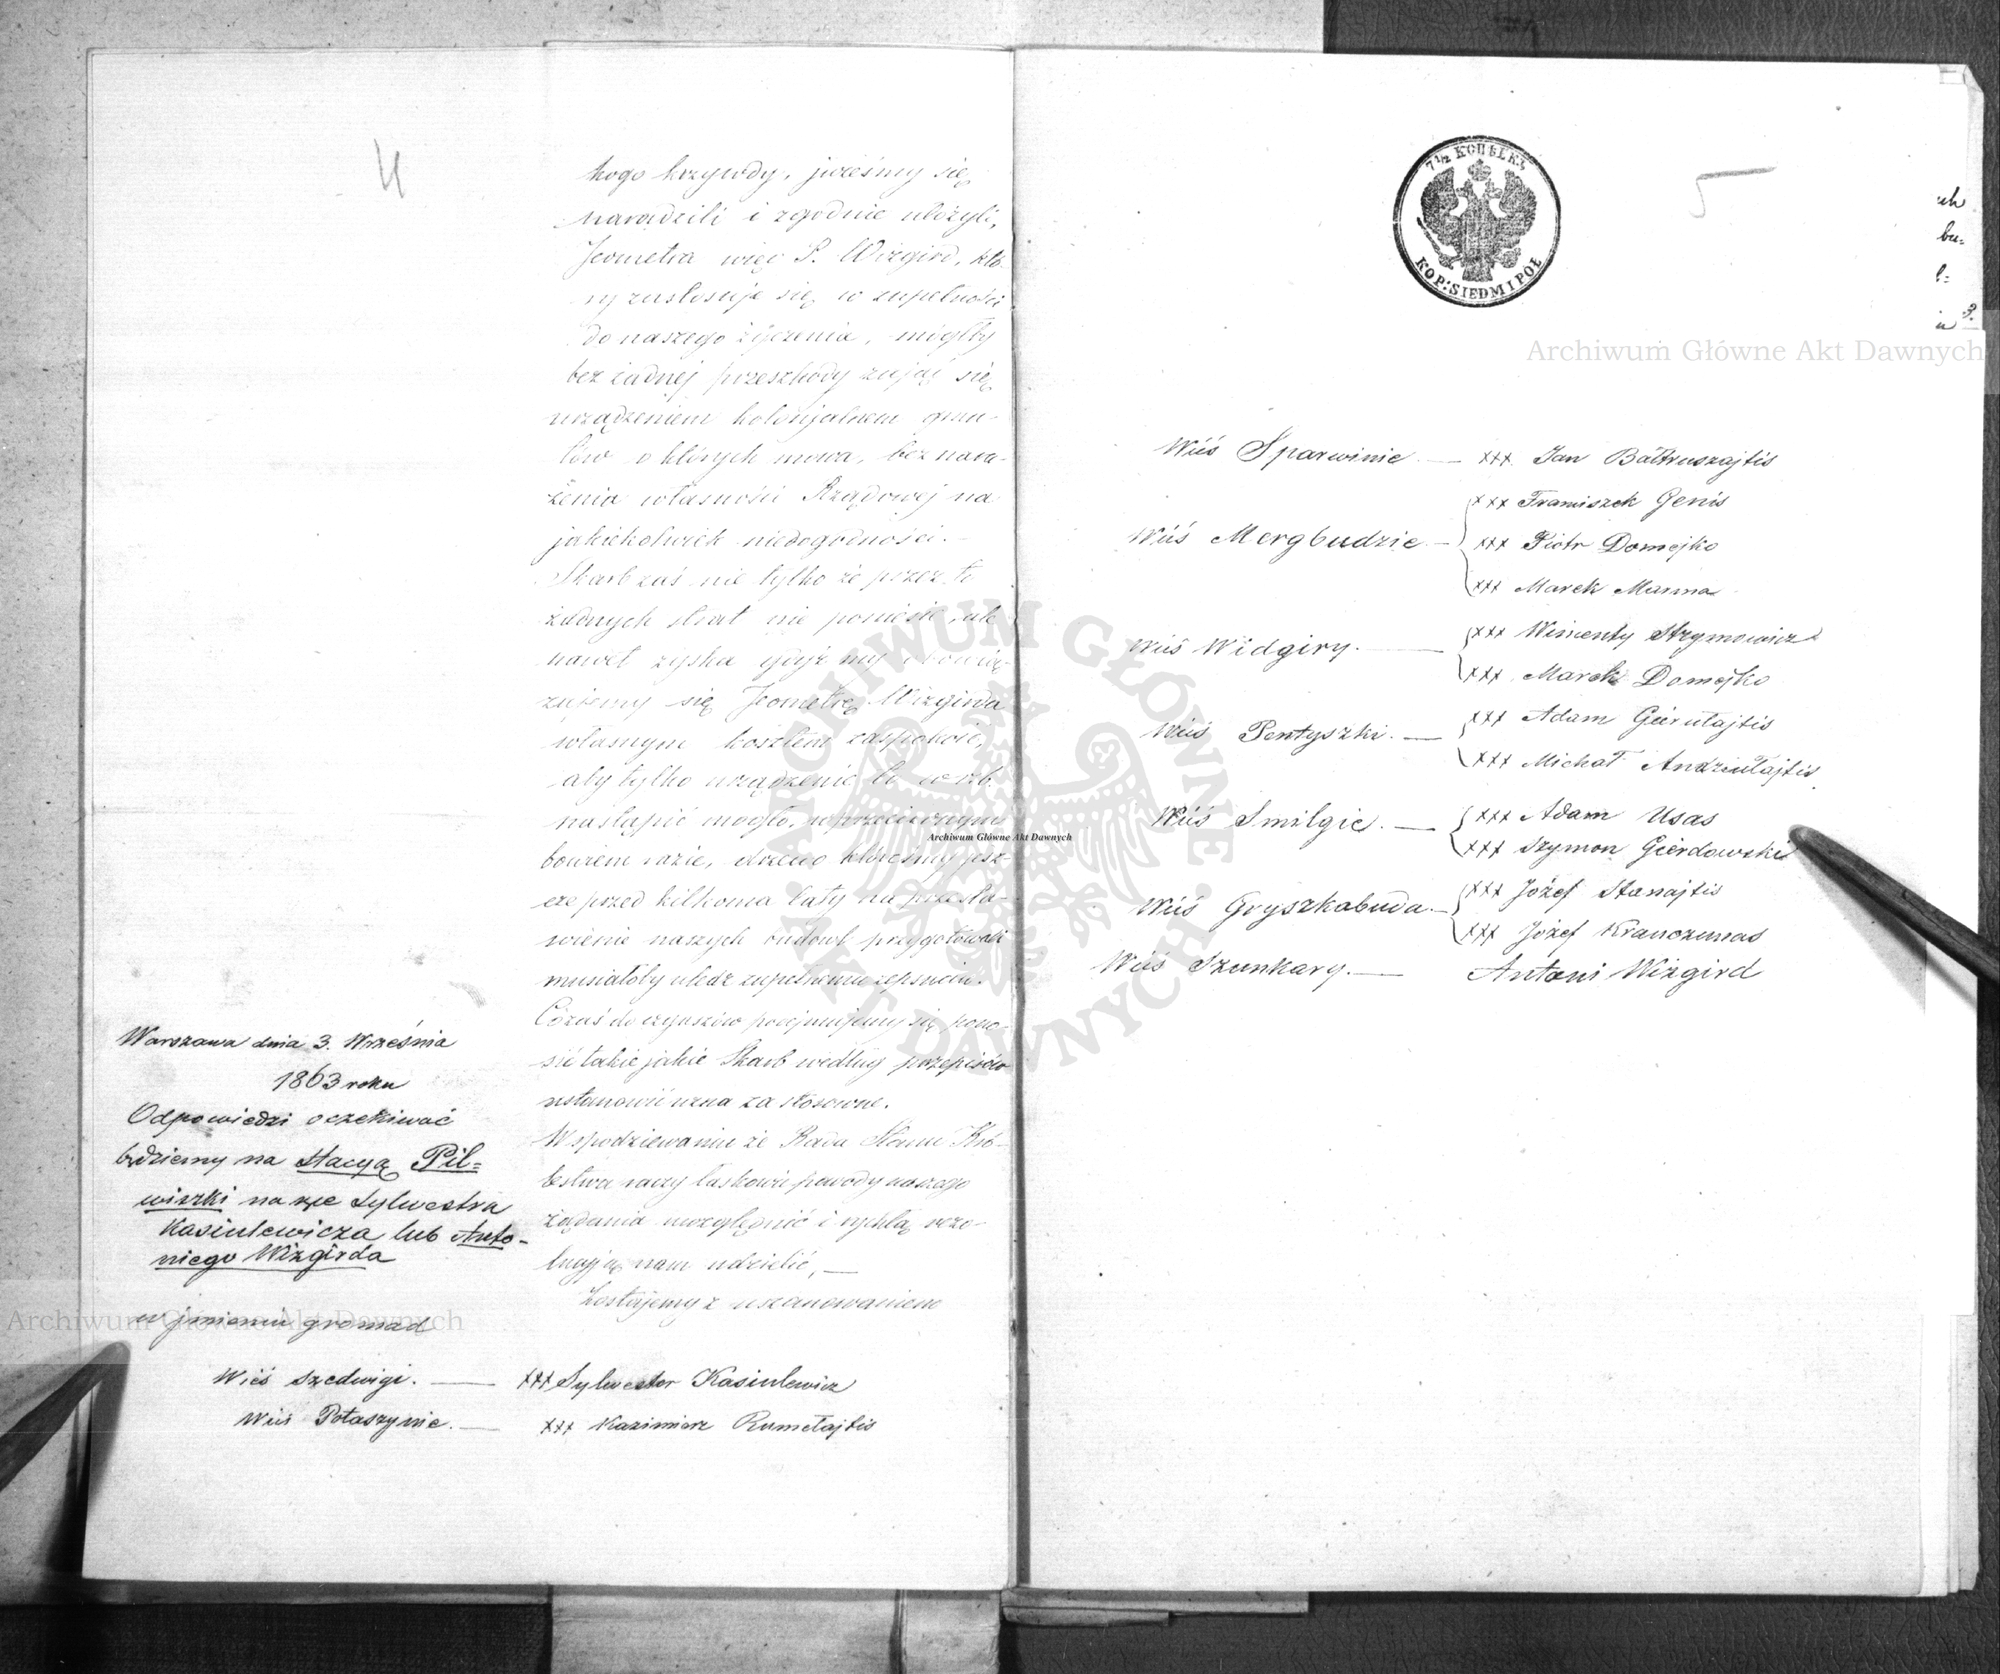 4
kogo krzywdy, jeześmy się
naradzili i zgodnie ułożyli,
Jeometra więc P. Wizgird, któ-
ry zastosuje się w zupełności
do naszego życzenia, mógłby
bez żadnej przeszkody zająć się
urządzeniem kolonjalnem grun-
tów o których mowa, bez nara-
żenia własności Rządowej na
jakiekolwiek niedogodności.
Skarb zaś nie tylko że przez to
żadnych strat nie poniesie, ale
nawet zyska gdyż my obowią-
zujemy się Jeometrę Wizgirda
własnym kosztem zaspokoić,
aby tylko urządzenie to w r.b.
nastąpić mogło, w przeciwnym
bowiem razie, drzewo któreśmy jesz-
cze przed kilkoma laty na przesta-
wienie naszych budowl przygotowali
musiałoby uledz zupełnemu zepsuciu.
Co zaś do czynszów podejmujemy się pono-
sić takie jakie Skarb według przepisów
ustanowić uzna za stosowne.
W spodziewaniu że Rada Stanu Kró-
lestwa raczy łaskawie powody naszego
żądania uwzględnić i rychłą rezo-
lucyję nam udzielić, —
Zostajemy z uszanowaniem
Warszawa dnia 3. Września
1863 roku
Odpowiedzi oczekiwać
będziemy na stacyą Pil=
wiszki na ręce Sylwestra
Kasiulewicza lub Anto-
niego Wizgirda
w jmieniu gromad
Wieś Szedwigi. — xxx Sylwester Kasiulewicz
Wieś Potaszynie. — xxx Kazimierz Rumełajtis
7 1/2 КОПѢЕКЪ
KOP: SIEDM I PÓŁ
5
Wieś Sparwinie — xxx Jan Bałtruszajtis
xxx Franciszek Genis
Wieś Mergbudzie — xxx Piotr Domejko
xxx Marek Manna
Wieś Widgiry. — xxx Wincenty Strymowicz
xxx Marek Domejko
Wieś Pentyszki. — xxx Adam Gierułajtis
xxx Michał Andziułajtis
Wieś Smilgie. — xxx Adam Usas
xxx Szymon Gierdowski
xxx Józef Stanajtis
Wieś Gryszkabuda — xxx Józef Kranczunas
Wieś Szunkary. — Antoni Wizgird
Archiwum Główne Akt Dawnych
Archiwum Główne Akt Dawnych
Archiwum Główne Akt Dawnych
ARCHIWUM GŁÓWNE
AKT DAWNYCH